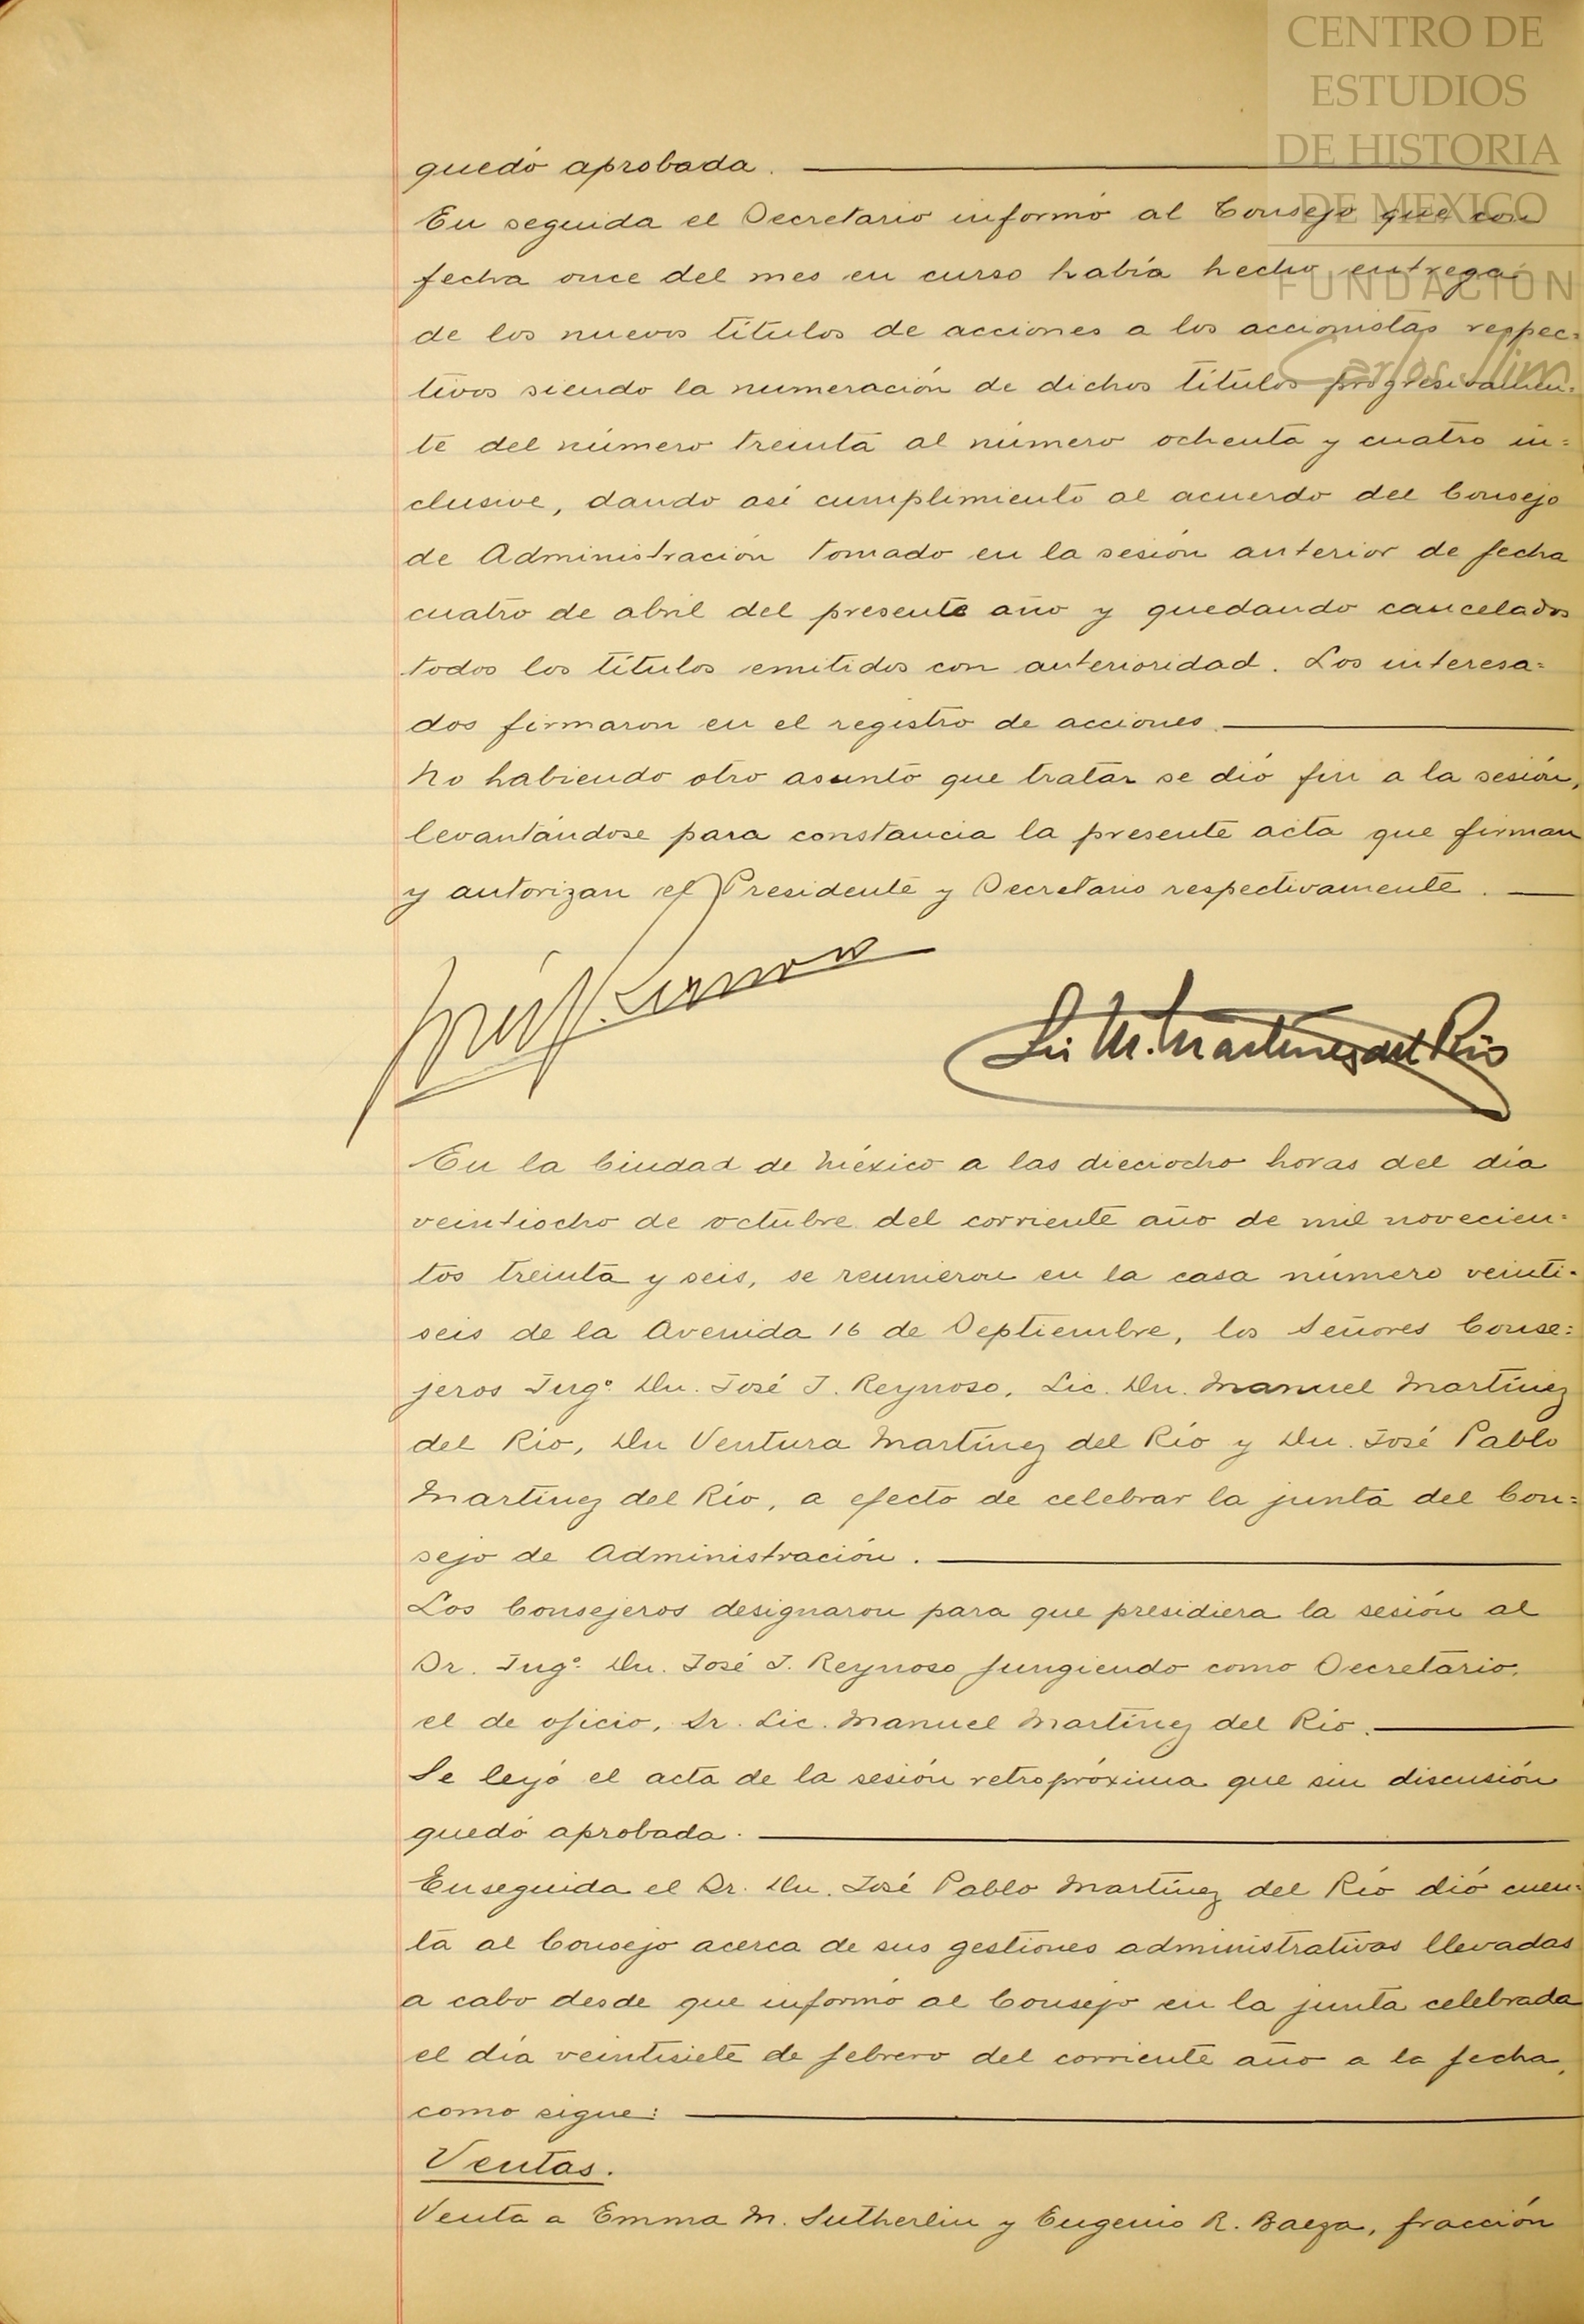 CENTRO DE
ESTUDIOS
DE HISTORIA
DE MEXICO
FUNDACIÓN
Carlos Slim
quedó aprobada.
En seguida el Secretario informó al Consejo que con
fecha once del mes en curso había hecho entrega
de los nuevos títulos de acciones a los accionistas respec=
tivos siendo la numeración de dichos títulos progresivamen=
te del número treinta al número ochenta y cuatro in=
clusive, dando así cumplimiento al acuerdo del Consejo
de Administración tomado en la sesión anterior de fecha
cuatro de abril del presente año y quedando cancelados
todos los títulos emitidos con anterioridad. Los interesa=
dos firmaron en el registro de acciones.
No habiendo otro asunto que tratar se dió fin a la sesión,
levantándose para constancia la presente acta que firman
y autorizan el Presidente y Secretario respectivamente.
M. Martínez del Río
En la Ciudad de México a las dieciocho horas del día
veintiocho de octubre del corriente año de mil novecien=
tos treinta y seis, se reunieron en la casa número veinti-
seis de la Avenida 16 de Septiembre, los Señores Conse=
jeros Ingº. Dn. José J. Reynoso, Lic. Dn. Manuel Martínez
del Río, Dn Ventura Martínez del Río y Dn. José Pablo
Martínez del Río, a efecto de celebrar la junta del Con=
sejo de Administración.
Los Consejeros designaron para que presidiera la sesión al
Sr. Ingº. Dn. José J. Reynoso fungiendo como Secretario,
el de oficio, Sr. Lic. Manuel Martínez del Río.
Se leyó el acta de la sesión retropróxima que sin discusión
quedó aprobada.
Enseguida el Sr. Dn. José Pablo Martínez del Río dió cuen=
ta al Consejo acerca de sus gestiones administrativas llevadas
a cabo desde que informó al Consejo en la junta celebrada
el día veintisiete de febrero del corriente año a la fecha,
como sigue:
Ventas.
Venta a Emma M. Sutherlin y Eugenio R. Baeza, fracción